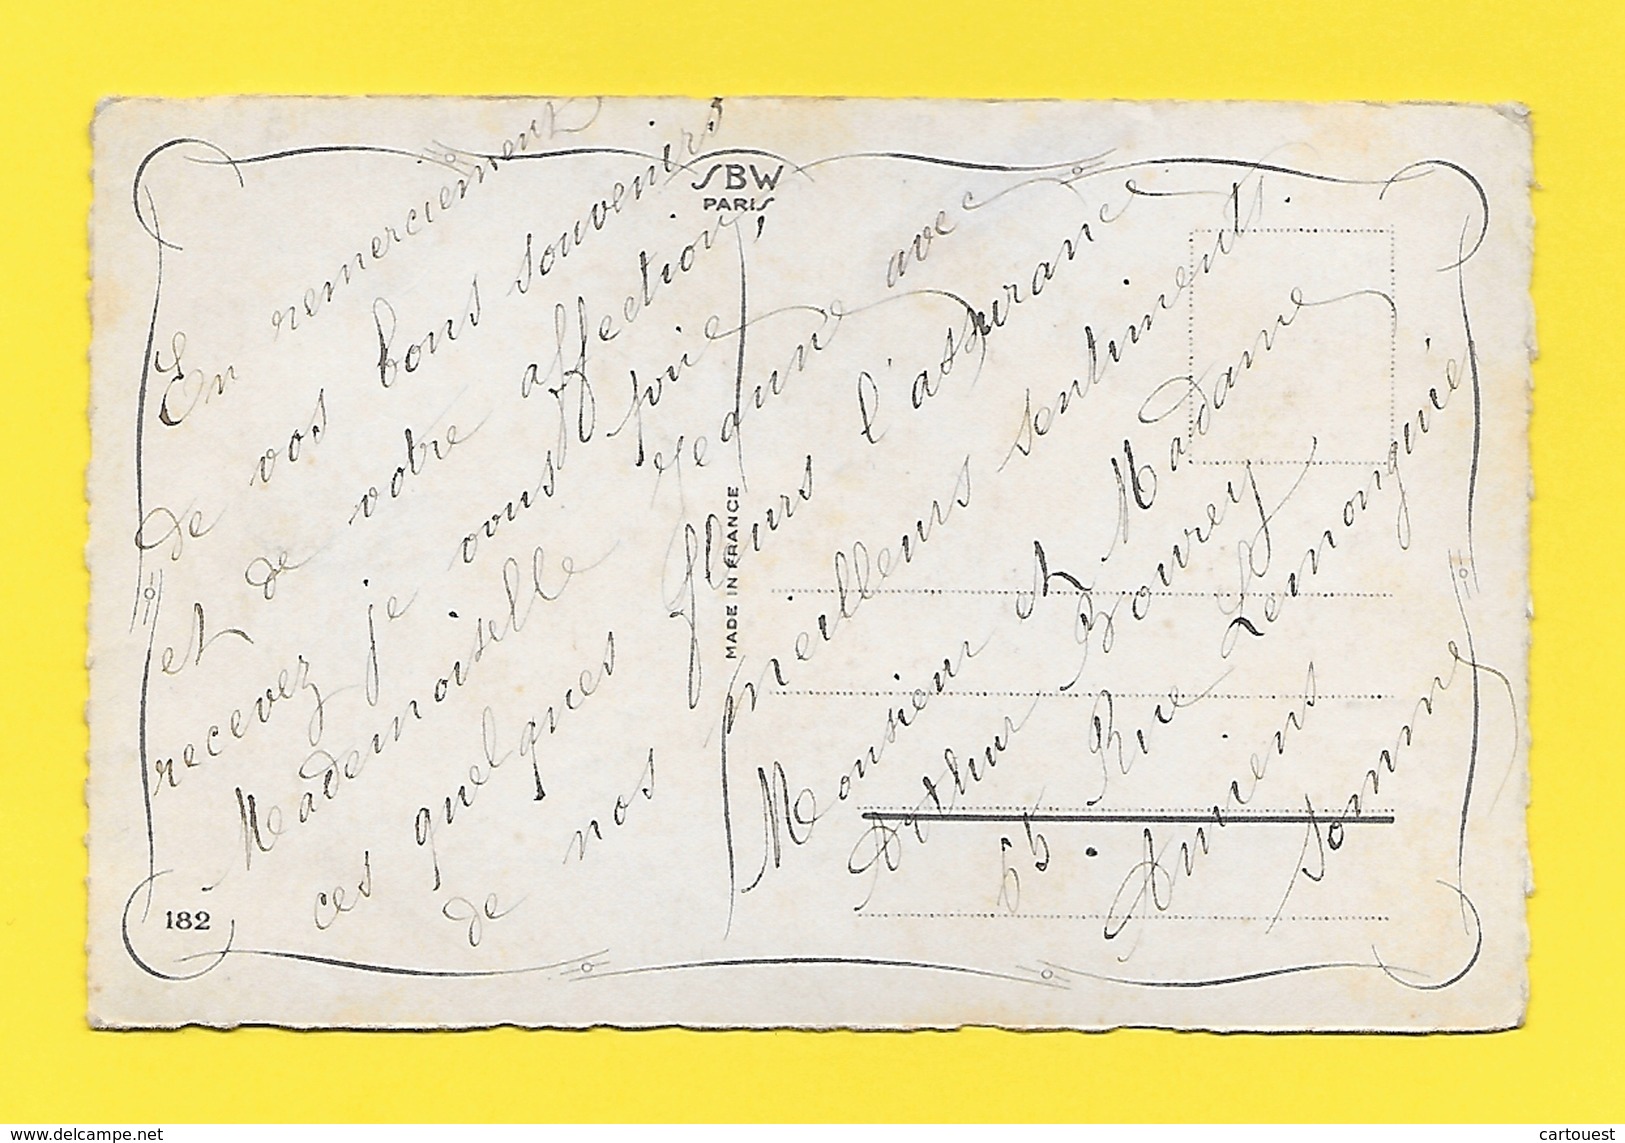 En remerciement
de vos bons souvenirs
et de votre affection,
recevez je vous prie
Mademoiselle Jeanne avec
ces quelques fleurs l'assurance
de nos meilleurs sentiments.
Monsieur et Madame
Arthur Bourey
65. Rue Lemongnier
Amiens
Somme
SBW
PARIS
MADE IN FRANCE
182
http://www.delcampe.net
cartouest